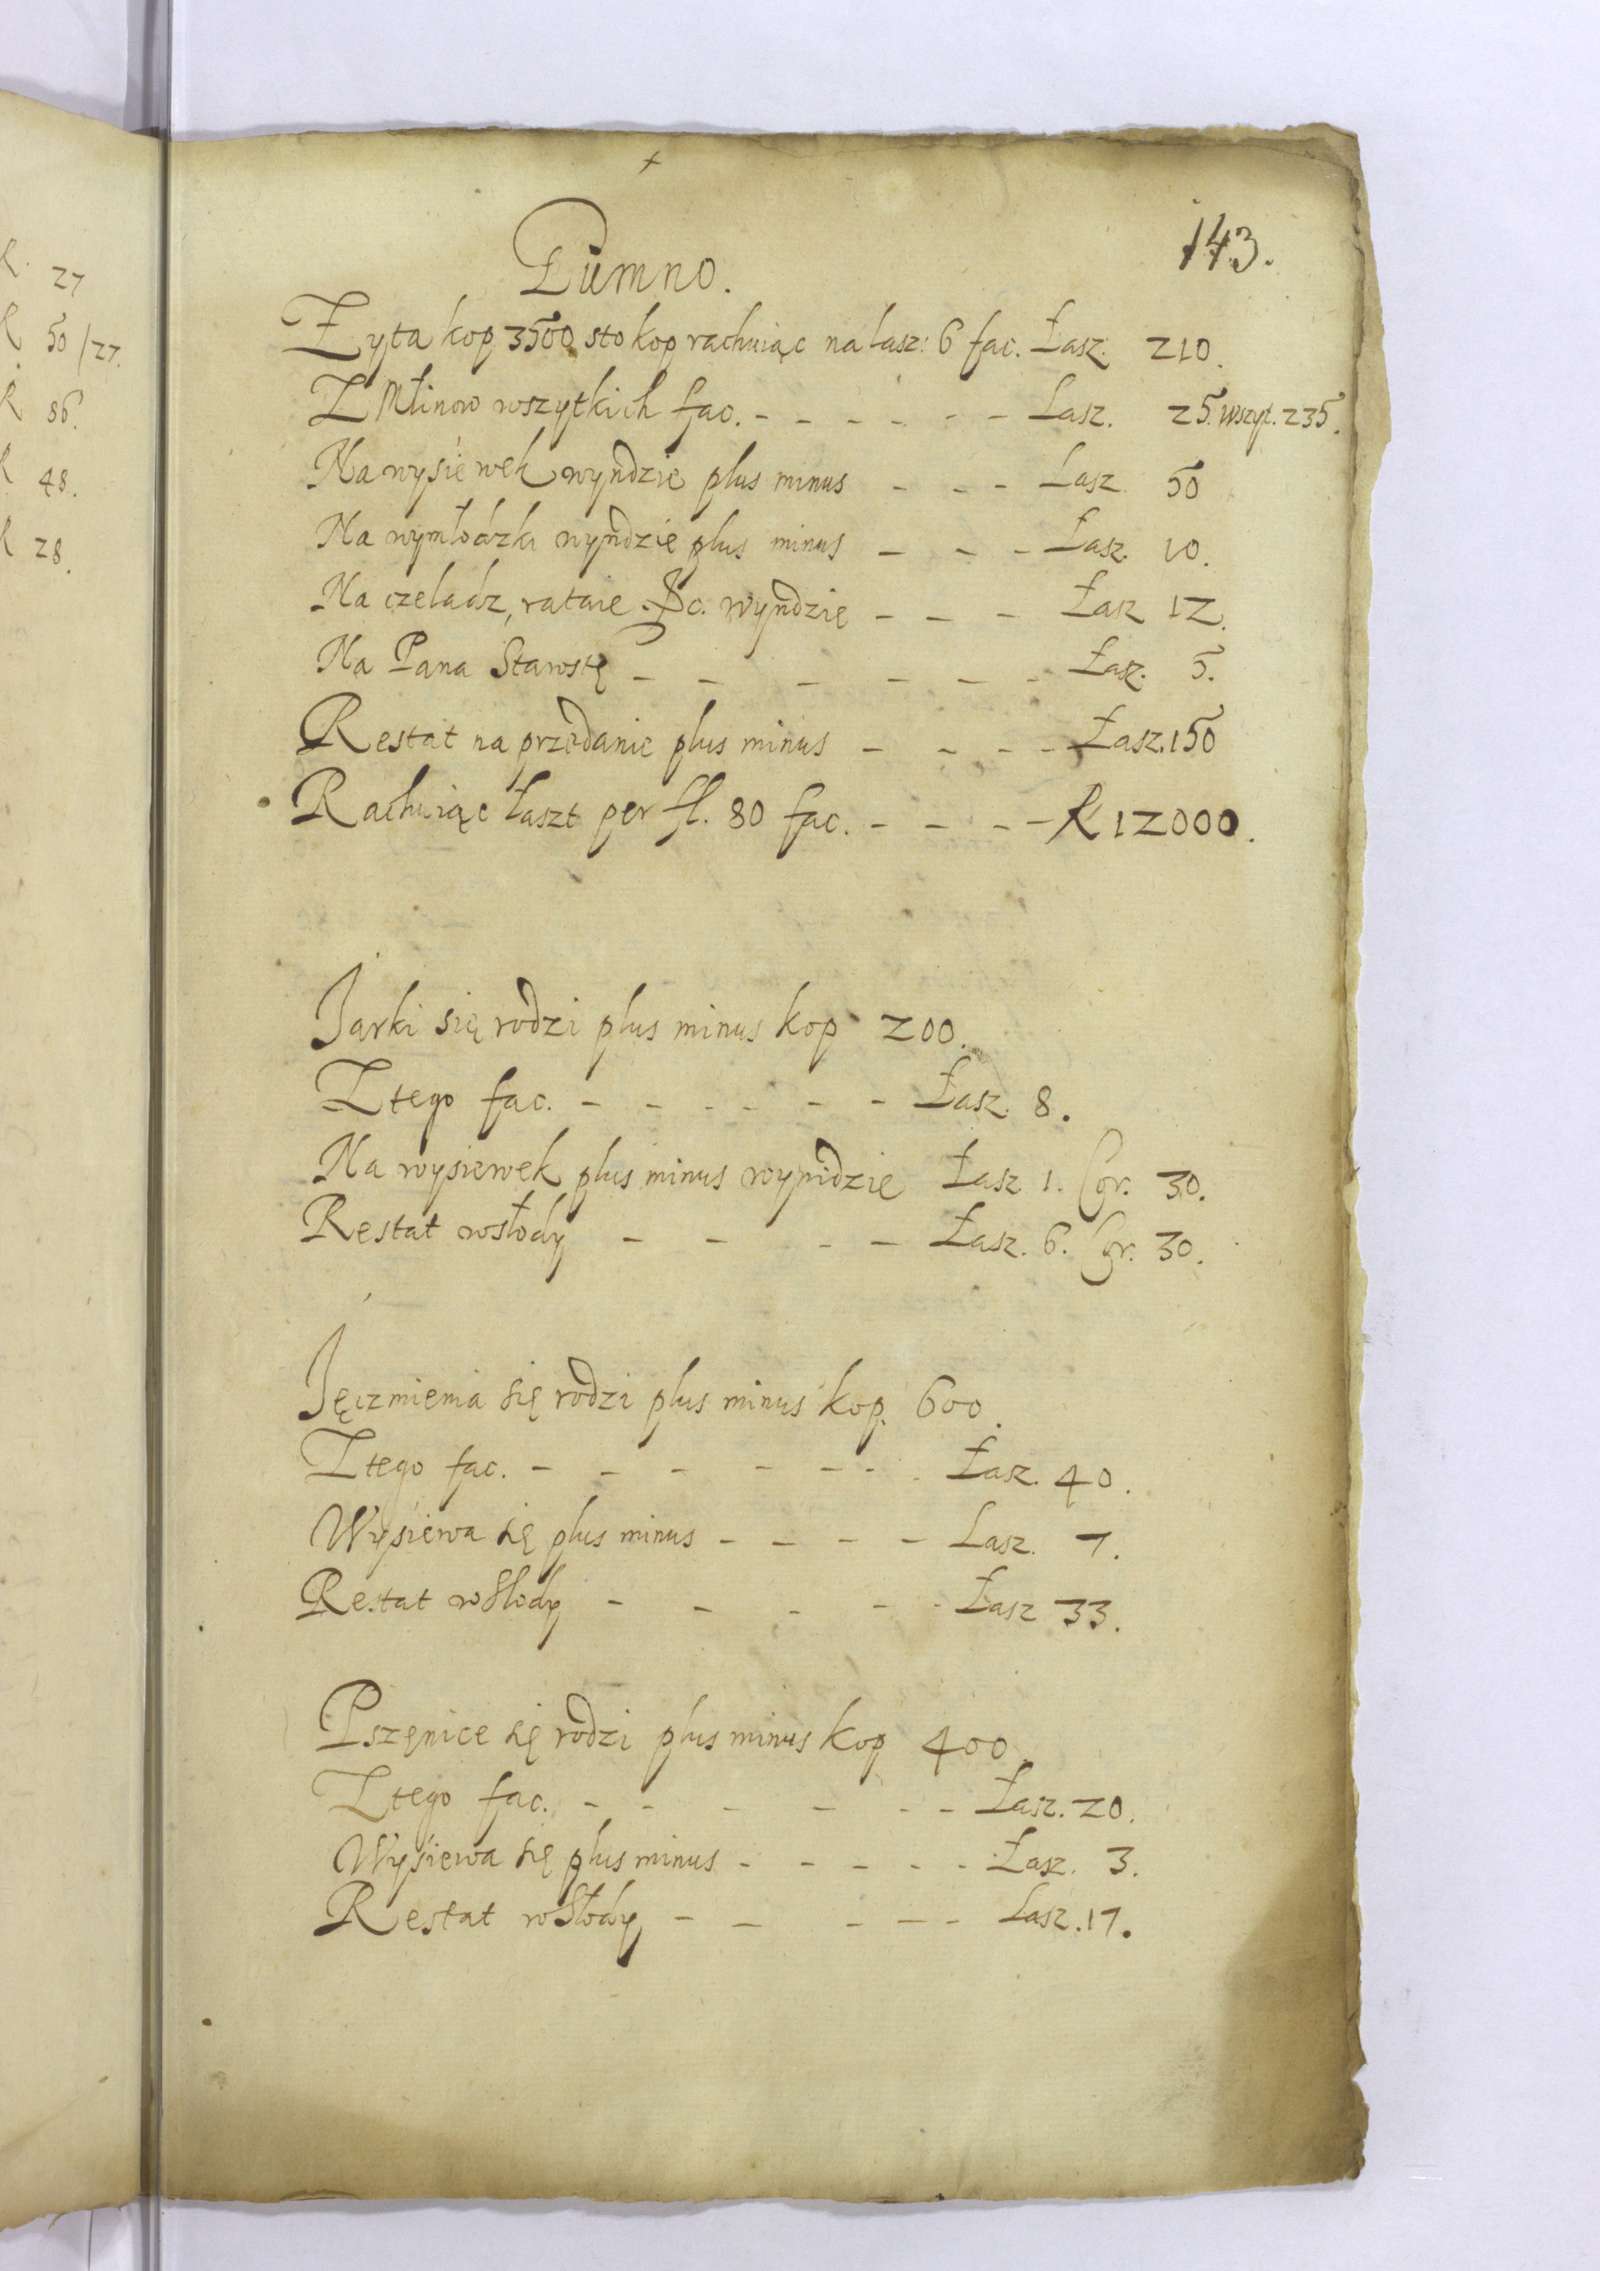 143.
Gumno.
Zyta kop 3500 sto kop rachuiąc na łasz: 6 fac. Łasz. 210.
Z Młinow wszytkich fac. - - - - - - Łasz. 25. wszyt. 235.
Na wysiewek wyndzie plus minus - - - Łasz 50
Na wymłoczki wyndzie plus minus - - - Łasz. 10.
Na czeladz, rataie &c. wyndzie - - - Łasz 12.
Na Pana Starostę - - - - - - Łasz. 5.
Restat na przedanie plus minus - - - - Łasz. 150
Rachuiąc łaszt per fl. 80 fac. - - - - R 12000.
Jarki się rodzi plus minus kop 200.
Z tego fac. - - - - - - Łasz. 8.
Na wysiewek plus minus wynidzie Łasz 1. Cor. 30.
Restat w słody - - - - Łasz. 6. Cor. 30.
Jęczmienia się rodzi plus minus kop. 600.
Z tego fac. - - - - - - Łasz. 40.
Wysiewa się plus minus - - - - Łasz. 7.
Restat w słody - - - - - Łasz 33.
Pszenice się rodzi plus minus kop 400.
Z tego fac. - - - - - - Łasz. 20.
Wysiewa się plus minus - - - - - Łasz. 3.
Restat w słody - - - - - Łasz. 17.
R 27
R 50/27.
R 86.
R 48.
R 28.